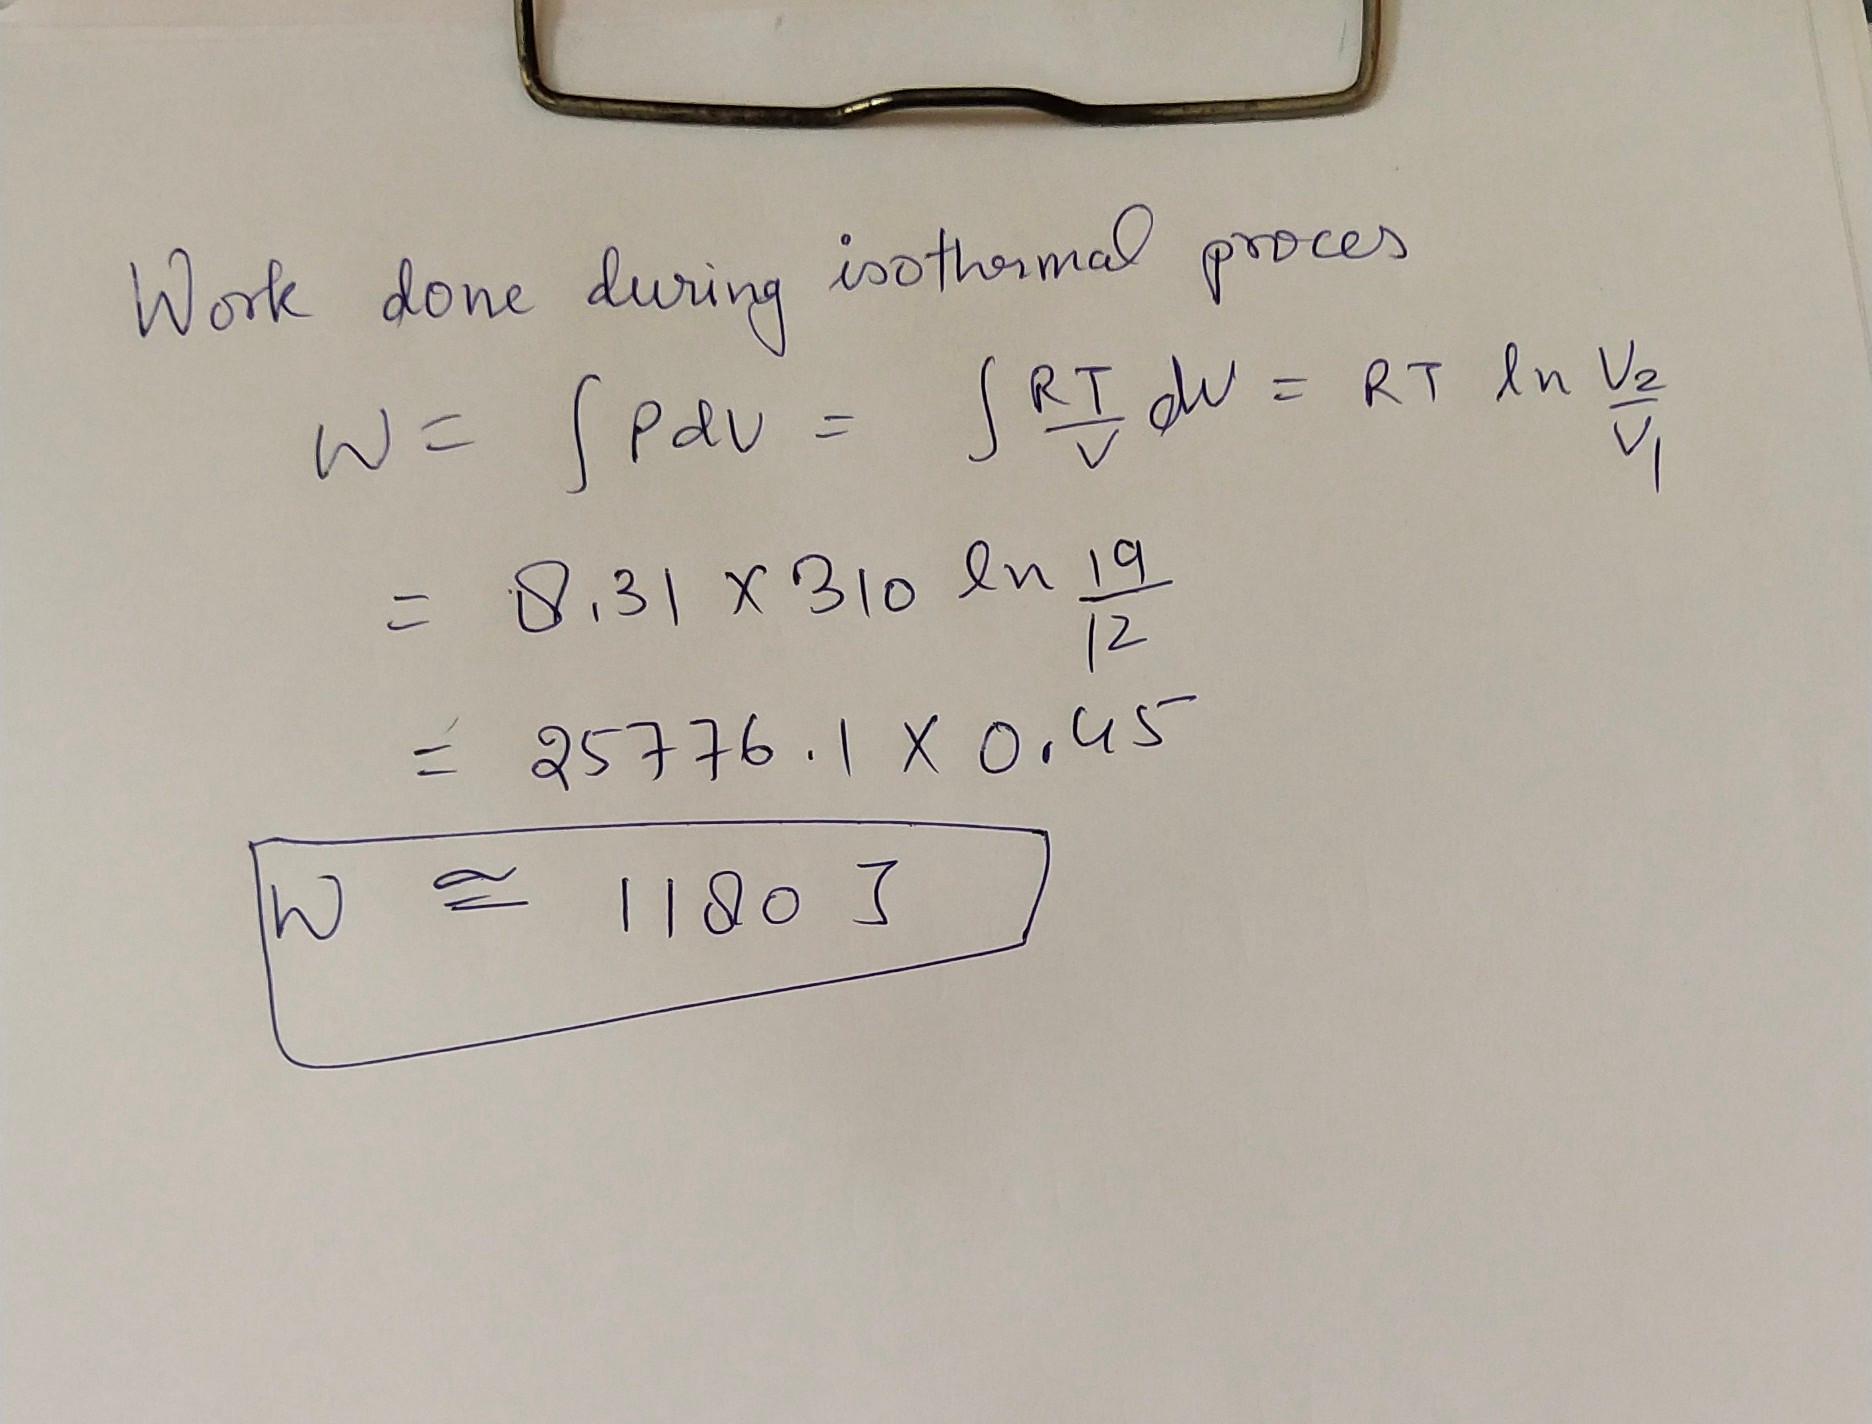 Work done during isothermal proces
W = ∫ PdV = ∫ RT/V dV = RT ln V2/V1
= 8.31 X 310 ln 19/12
= 25776.1 X 0.45
W ≅ 1180 J